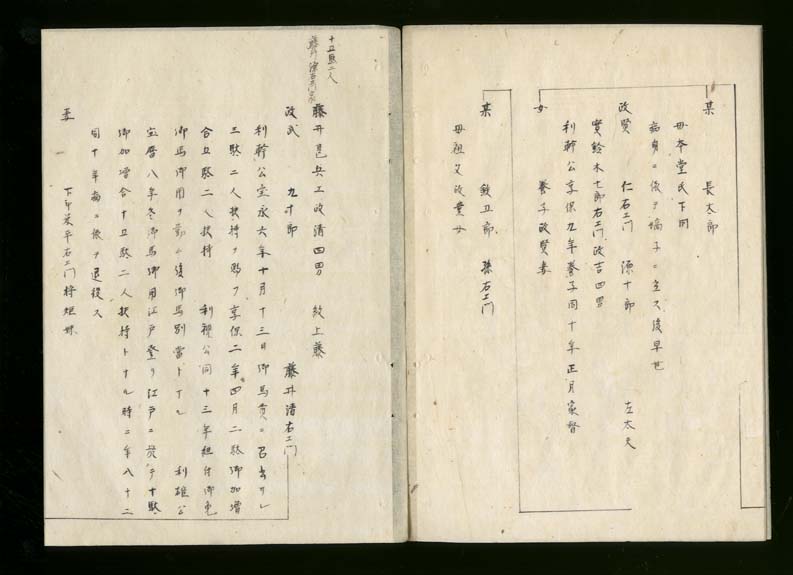 某 長太郎
母本堂氏下同
病身ニ依テ嫡子ニ立ス後早世
政賢 仁右エ門 源十郎 左太夫
實鈴木七郎右エ門政吉四男
利幹公享保九年養子同十年正月家督
女 養子政賢妻
某 鉄五郎 孫右エ門
母祖父政貴女
十五駄二人
藤井清右エ門家
藤井甚兵エ政清四男 紋上藤
政武 九十郎 藤井清右エ門
利幹公宝永六年十月十三日御馬責ニ召出サレ
三駄二人扶持ヲ賜フ享保二年四月二駄御加増
合五駄二人扶持 利視公同十三年組付御免
御馬御用ヲ勤ム後御馬別當トナル 利雄公
宝暦八年冬御馬御用江戸登リ江戸ニ於テ十駄
御加増合十五駄二人扶持トナル時ニ年八十二
同十年病ニ依テ退役ス
妻 下印栄平右エ門姉妹